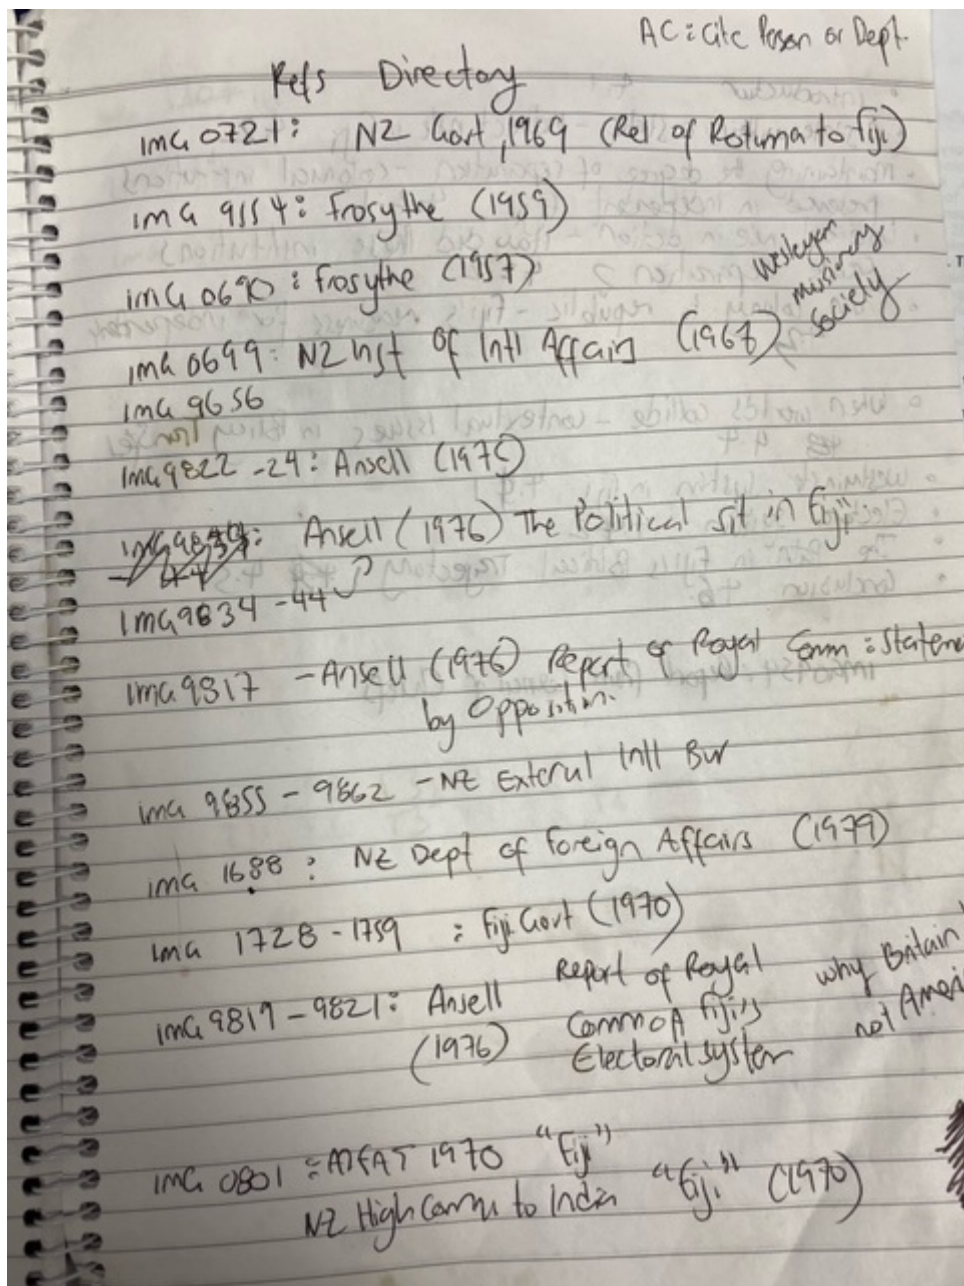 AC: Cite Person or Dept.
Refs Directory
IMG 0721: NZ Govt, 1969 (Rel of Rotuma to Fiji)
IMG 9154: Frosythe (1959)
IMG 0690: Frosythe (1957)
Wesleyan
missionary
society
IMG 0699: NZ Inst of Intl Affairs (1967)
IMG 9656
IMG 9822-24: Ansell (1976)
Ansell (1976) The Political Sit in Fiji"
IMG 9834-44
IMG 9817 - Ansell (1976) Report of Royal Comm: Stateme
by Opposition.
IMG 9855 - 9862 - NZ External Intl Bur
IMG 1688: NZ Dept of Foreign Affairs (1979)
IMG 1728 - 1759: Fiji Govt (1970)
IMG 9819 - 9821: Ansell Report of Royal
(1976) Comm of Fiji's
Electoral system
why Britain
not Ameri
IMG 0801: 1970 "Fiji"
NZ High Comm to India "Fiji" (1970)